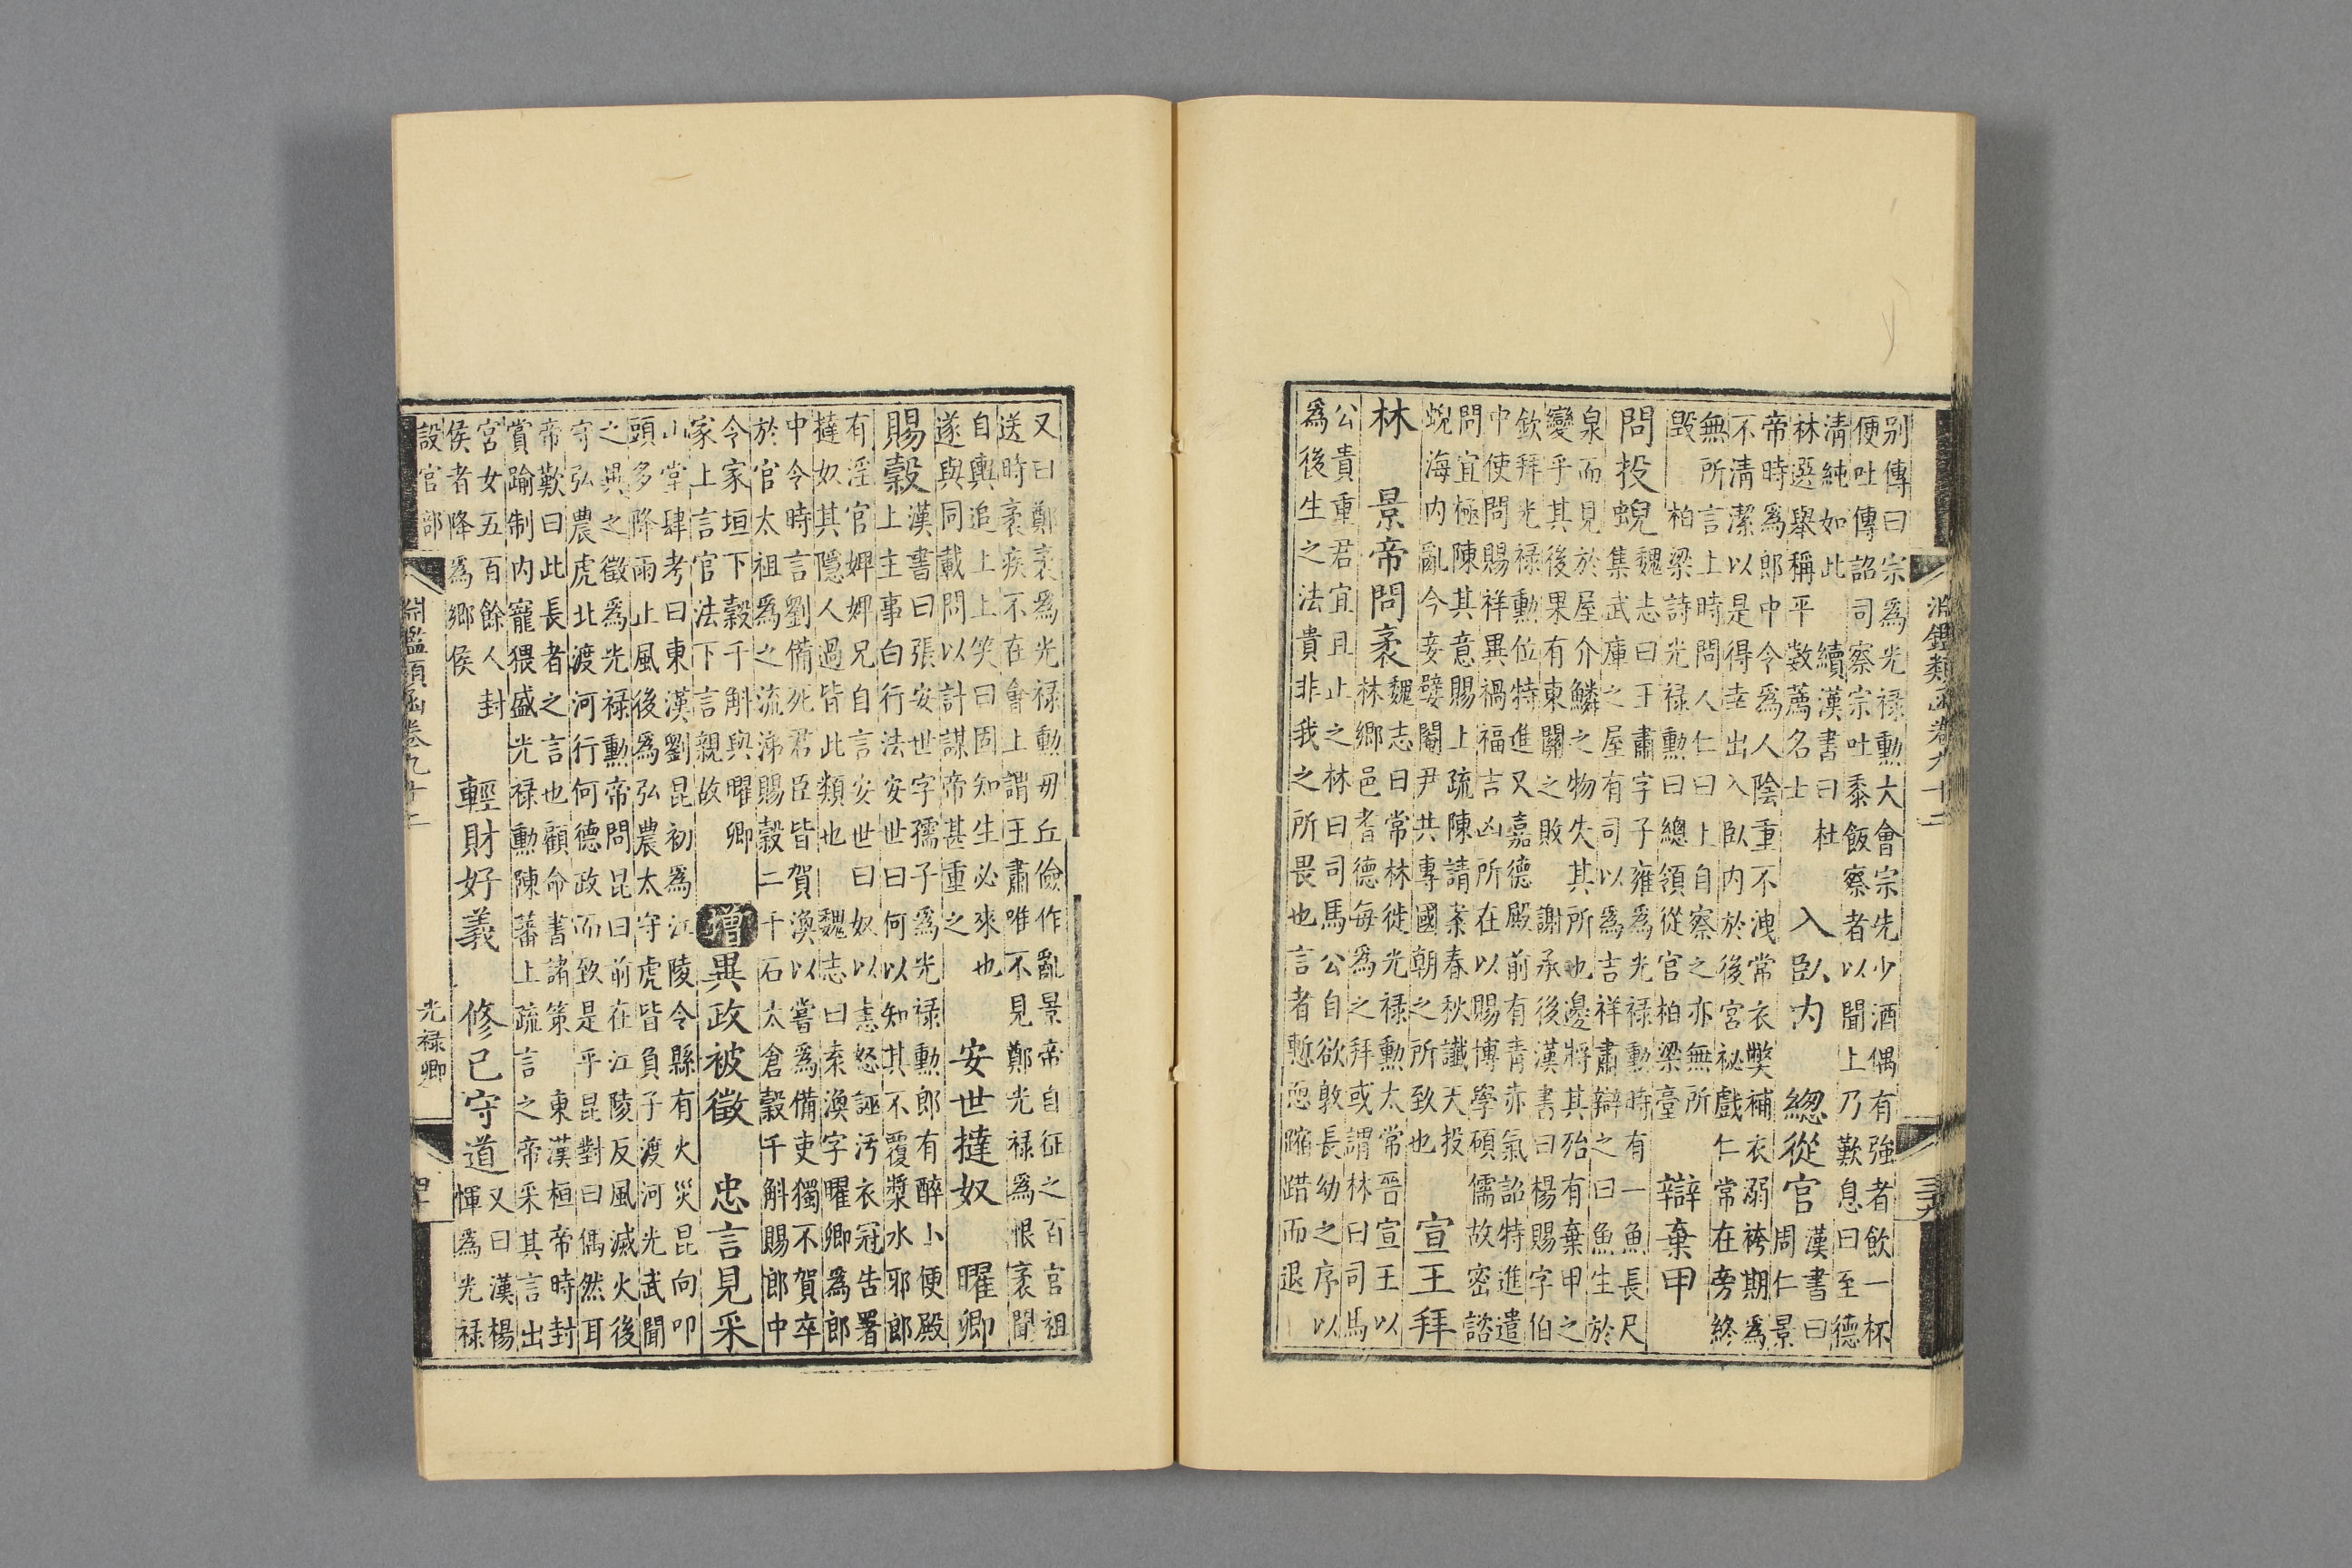 淵鑑類函卷九十二
三十九
别傳曰宗爲光禄勲大會宗先少酒偶有強者飲一杯
便吐傳詔司察宗吐黍飯察者以聞上乃歎息曰至德
清純如此 續漢書曰杜
林選舉稱平 數薦名士
入卧内 總從官
漢書曰
周仁景
帝時爲郎中令爲人陰重不洩常衣弊補衣溺袴期爲
不清潔以是得幸出入卧内於後宮祕戲仁常在旁終
無所言上時問人仁曰上自察之亦無所
毁 柏梁詩光禄勲曰總領從官柏梁臺
辯棄甲
問投蜺
魏志曰王肅字子雍爲光禄勲時有一魚長尺
集武庫之屋有司以爲吉祥肅辯之曰魚生於
泉而見於屋介鱗之物失其所也邊將其殆有棄甲之
變乎其後果有東關之敗 謝承後漢書曰楊賜字伯
欽拜光禄勲位特進又嘉德殿前有青赤氣詔特進遣
中使問賜祥異禍福吉凶所在以賜博學碩儒故密諮
問宜極陳其意賜上疏陳請案春秋讖天投
蜺海内亂今妾嬖閹尹共專國朝之所致也
宣王拜
林 景帝問袤
魏志曰常林徙光禄勲太常晉宣王以
林鄉邑耆德每爲之拜或謂林曰司馬
公貴重君宜且止之林曰司馬公自欲敦長幼之序以
爲後生之法貴非我之所畏也言者慙恧蹜踖而退
又曰鄭袤爲光禄勲毋丘儉作亂景帝自征之百官祖
送時袤疾不在會上謂王肅唯不見鄭光禄爲恨袤聞
自輿追上上笑曰固知生必來也
遂與同載問以計謀帝甚重之
安世撻奴 曜卿
賜穀
漢書曰張安世字孺子爲光禄勲郎有醉小便殿
上主事白行法安世曰何以知其不覆漿水邪郎
有淫官婢婢兄自言安世曰奴以恚怒誣汚衣冠告署
撻奴其隱人過皆此類也 魏志曰袁渙字曜卿爲郎
中令時言劉備死君臣皆賀渙以嘗爲備吏獨不賀卒
於官太祖爲之流涕賜穀二千石太倉穀千斛賜郎中
令家垣下穀千斛與曜卿
家上言官法下言親故
增異政被徵 忠言見采
山堂肆考曰東漢劉昆初爲江陵令縣有火災昆向叩
頭多降雨止風後爲弘農太守虎皆負子渡河光武聞
之異之徵爲光禄勲帝問昆曰前在江陵反風滅火後
守弘農虎北渡河行何德政而致是乎昆對曰偶然耳
帝歎曰此長者之言也顧命書諸策 東漢桓帝時封
賞踰制内寵猥盛光禄勲陳蕃上疏言之帝采其言出
宮女五百餘人 封
侯者降爲鄉侯
輕財好義 修己守道
又曰漢楊
惲爲光禄
設官部
淵鑑類函卷九十二
光禄卿
四十